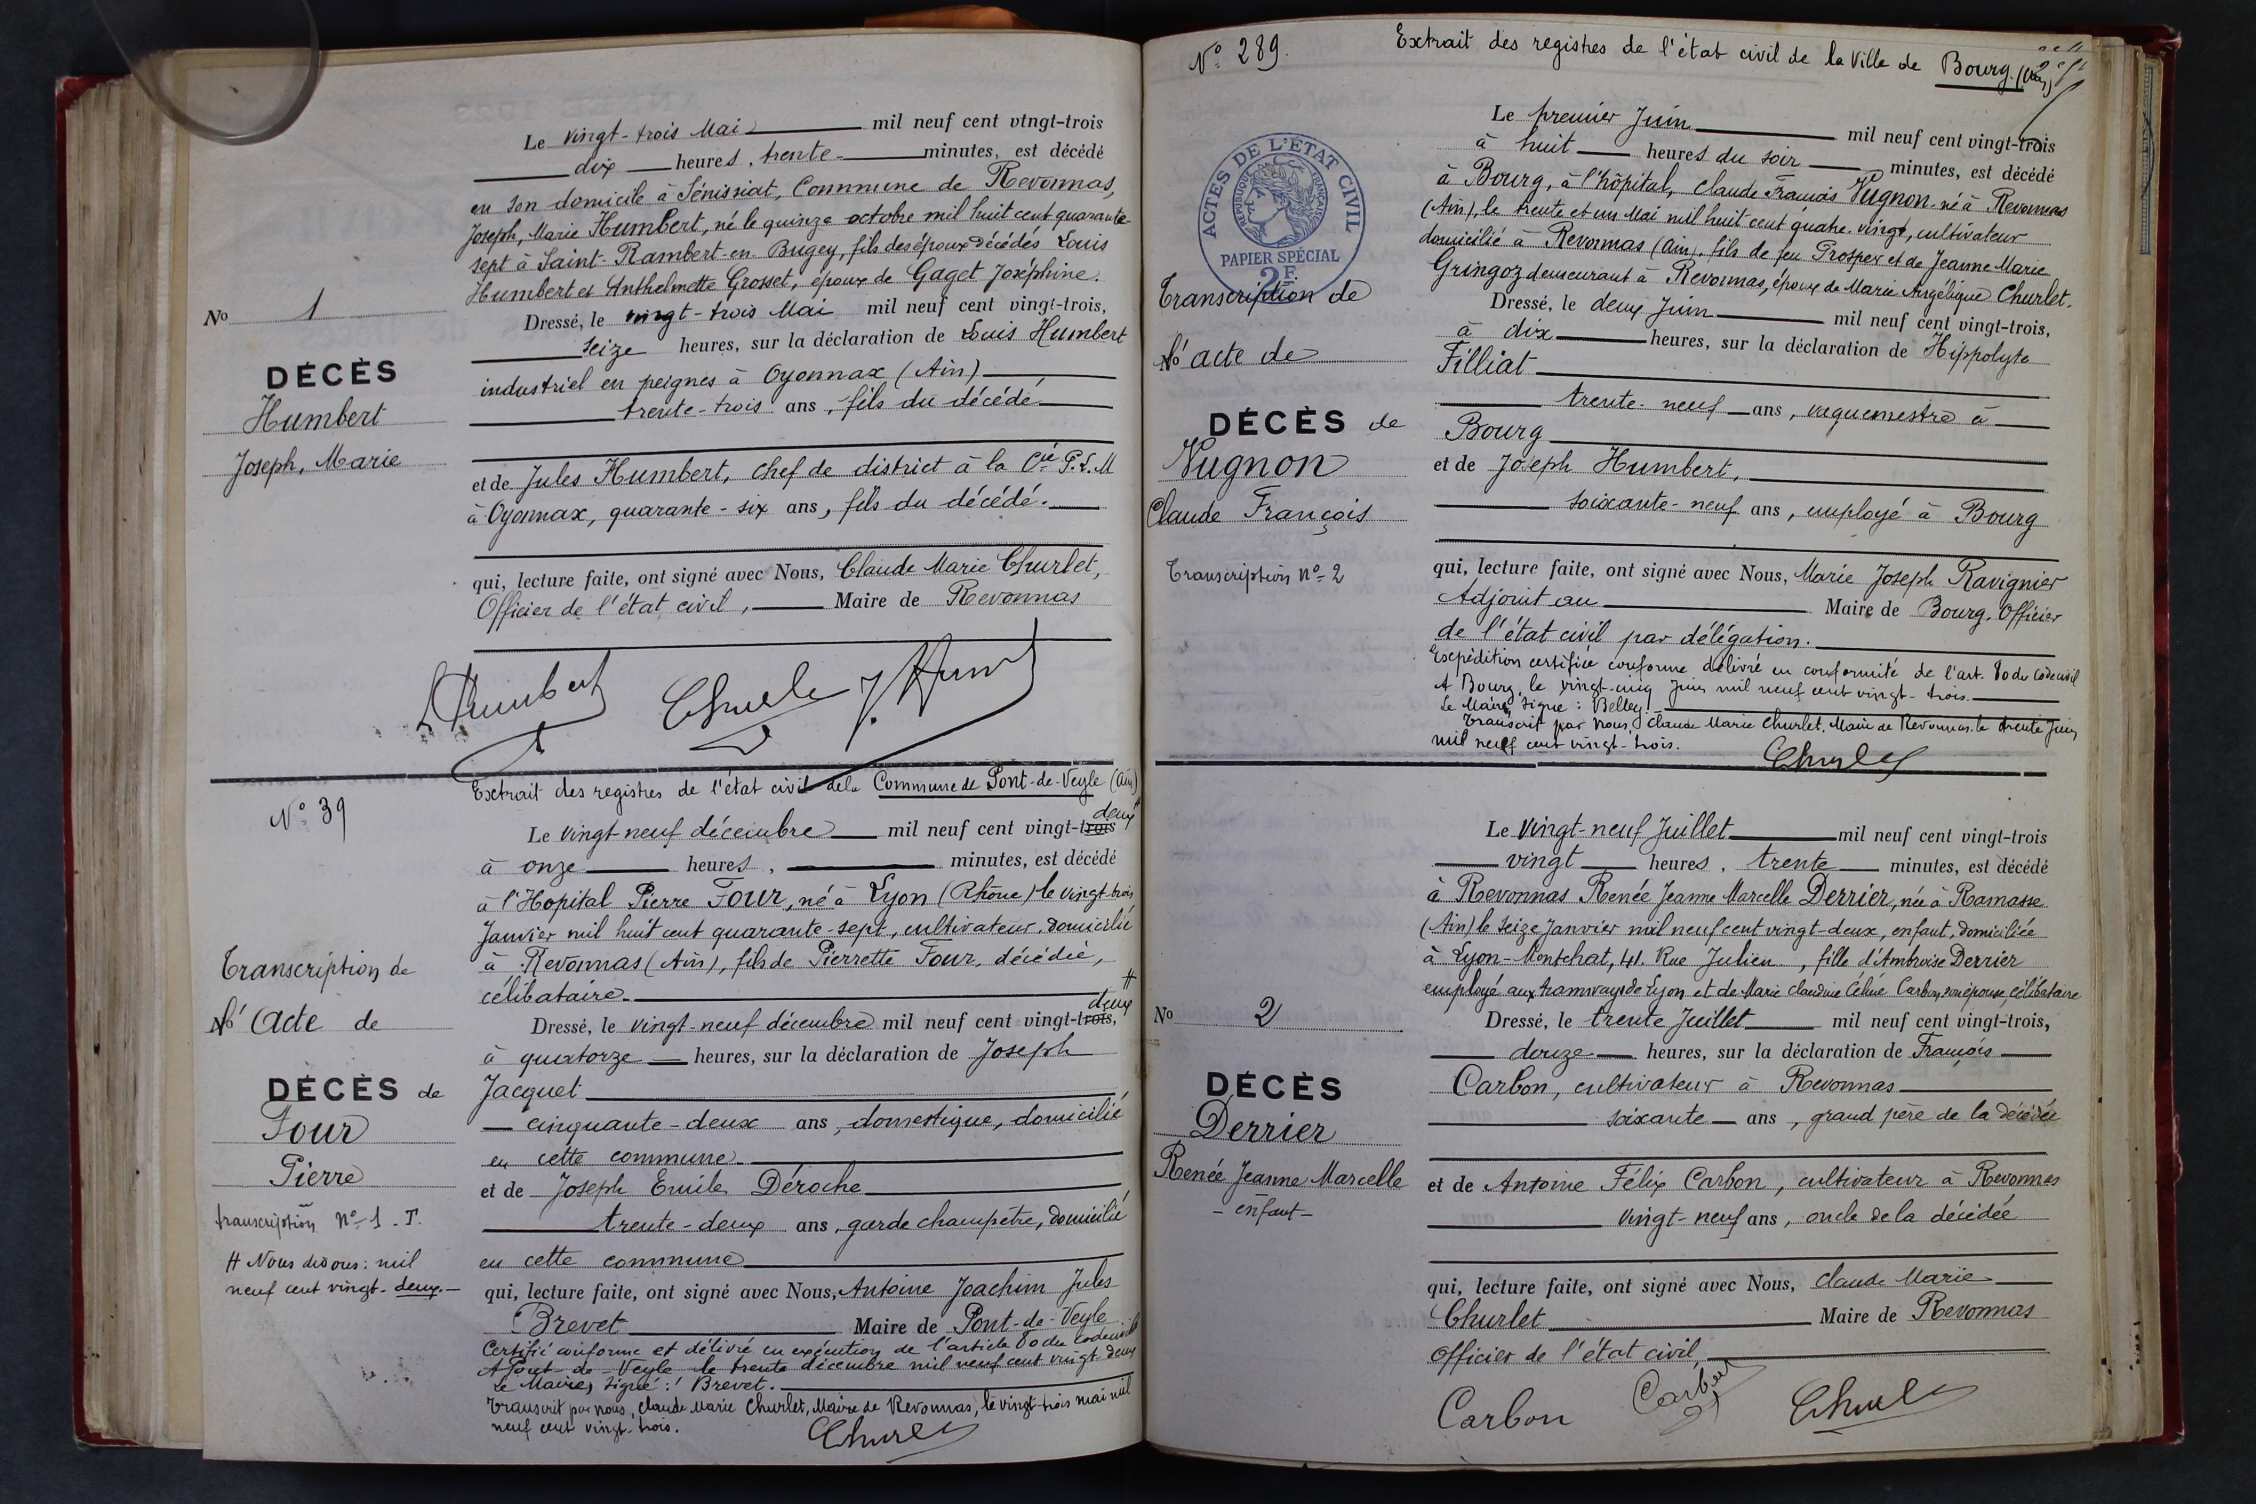 Le vingt-trois Mai mil neuf cent vingt-trois
dix heures, trente minutes, est décédé
en son domicile à Sénissiat, Commune de Revonnas,
Joseph, Marie Humbert, né le quinze octobre mil huit cent quarante
sept à Saint-Rambert-en Bugey, fils des époux décédés Louis
Humbert et Anthelmette Grosset, époux de Gaget Joséphine.
No 1
Dressé, le vingt-trois Mai mil neuf cent vingt-trois,
seize heures, sur la déclaration de Louis Humbert
DÉCÈS
industriel en peignes à Oyonnax (Ain)
Humbert
trente-trois ans, fils du décédé
Joseph, Marie
et de Jules Humbert, chef de district à la Cie P.L.M
à Oyonnax, quarante-six ans, fils du décédé.
qui, lecture faite, ont signé avec Nous, Claude Marie Churlet,
Officier de l'état civil, Maire de Revonnas
LHumbert Churlet J. Hum
Extrait des registres de l'état civil de la Commune de Pont-de-Veyle (Ain)
N° 39
deux #
Le vingt neuf décembre mil neuf cent vingt-trois
à onze heures, minutes, est décédé
à l'Hopital Pierre Four, né à Lyon (Rhône) le vingt-trois
Janvier mil huit cent quarante-sept, cultivateur, domicilié
à Revonnas (Ain), fils de Pierrette Four, décédée,
célibataire.
Transcription de
# deux
l'Acte de
Dressé, le vingt-neuf décembre mil neuf cent vingt-trois,
à quatorze heures, sur la déclaration de Joseph
DÉCÈS de
Jacquet
Four
cinquante-deux ans, domestique, domicilié
en cette commune
Pierre
et de Joseph Emile Déroche
transcription N° 1 - T.
trente-deux ans, garde champêtre, domicilié
# Nous disons: mil
en cette commune
neuf cent vingt-deux.
qui, lecture faite, ont signé avec Nous, Antoine Joachim Jules
Brevet Maire de Pont-de-Veyle
Certifié conforme et délivré en exécution de l'article 80 du code civil
A Pont-de-Veyle le trente décembre mil neuf cent vingt-deux
Le Maire, signé: Brevet.
Transcrit par nous, Claude Marie Churlet, Maire de Revonnas, le vingt-trois mai mil
neuf cent vingt-trois.
Churlet
N° 289. Extrait des registres de l'état civil de la Ville de Bourg. (Ain)
Le premier Juin mil neuf cent vingt-trois
à huit heures du soir minutes, est décédé
à Bourg, à l'hôpital, Claude François Vugnon né à Revonnas
(Ain), le trente et un Mai mil huit cent quatre-vingt, cultivateur
domicilié à Revonnas (Ain), fils de feu Prosper et de Jeanne Marie
Gringoz demeurant à Revonnas, époux de Marie Angélique Churlet.
ACTES DE L'ÉTAT CIVIL
RÉPUBLIQUE FRANÇAISE
PAPIER SPÉCIAL
2F.
Transcription de
l'acte de
DÉCÈS de
Vugnon
Claude François
Transcription N° 2
Dressé, le deux Juin mil neuf cent vingt-trois,
à dix heures, sur la déclaration de Hippolyte
Filliat
trente-neuf ans, vaguemestre à
Bourg
et de Joseph Humbert,
soixante-neuf ans, employé à Bourg
qui, lecture faite, ont signé avec Nous, Marie Joseph Ravignier
Adjoint au Maire de Bourg. Officier
de l'état civil par délégation.
Expédition certifiée conforme délivré en conformité de l'art. 80 du Code civil
A Bourg, le vingt-cinq Juin mil neuf cent vingt-trois.
Le Maire, signé: Belley.
Transcrit par Nous, Claude Marie Churlet, Maire de Revonnas le trente Juin
mil neuf cent vingt-trois.
Churlet
Le vingt-neuf Juillet mil neuf cent vingt-trois
vingt heures, trente minutes, est décédé
à Revonnas Renée Jeanne Marcelle Derrier, née à Ramasse
(Ain) le seize Janvier mil neuf cent vingt-deux, enfant, domiciliée
à Lyon-Montchat, 41. Rue Julien, fille d'Ambroise Derrier
employé aux tramways de Lyon et de Marie Claudine Célinie Carbon, son épouse, célibataire
No 2
Dressé, le trente Juillet mil neuf cent vingt-trois,
douze heures, sur la déclaration de François
DÉCÈS
Carbon, cultivateur à Revonnas
Derrier
soixante ans, grand père de la décédée
Renée Jeanne Marcelle
- enfant -
et de Antoine Félix Carbon, cultivateur à Revonnas
vingt-neuf ans, oncle de la décédée
qui, lecture faite, ont signé avec Nous, Claude Marie
Churlet Maire de Revonnas
Officier de l'état civil
Carbon Carbon Churlet